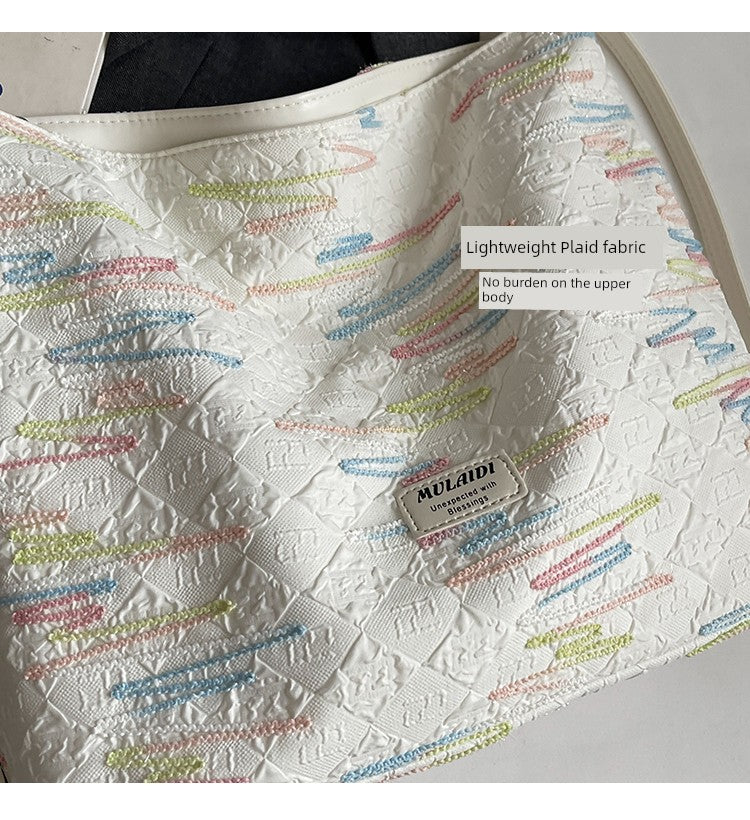 Lightweight Plaid fabric
No burden on the upper
body
MULAIDI
Unexpected with
Blessings